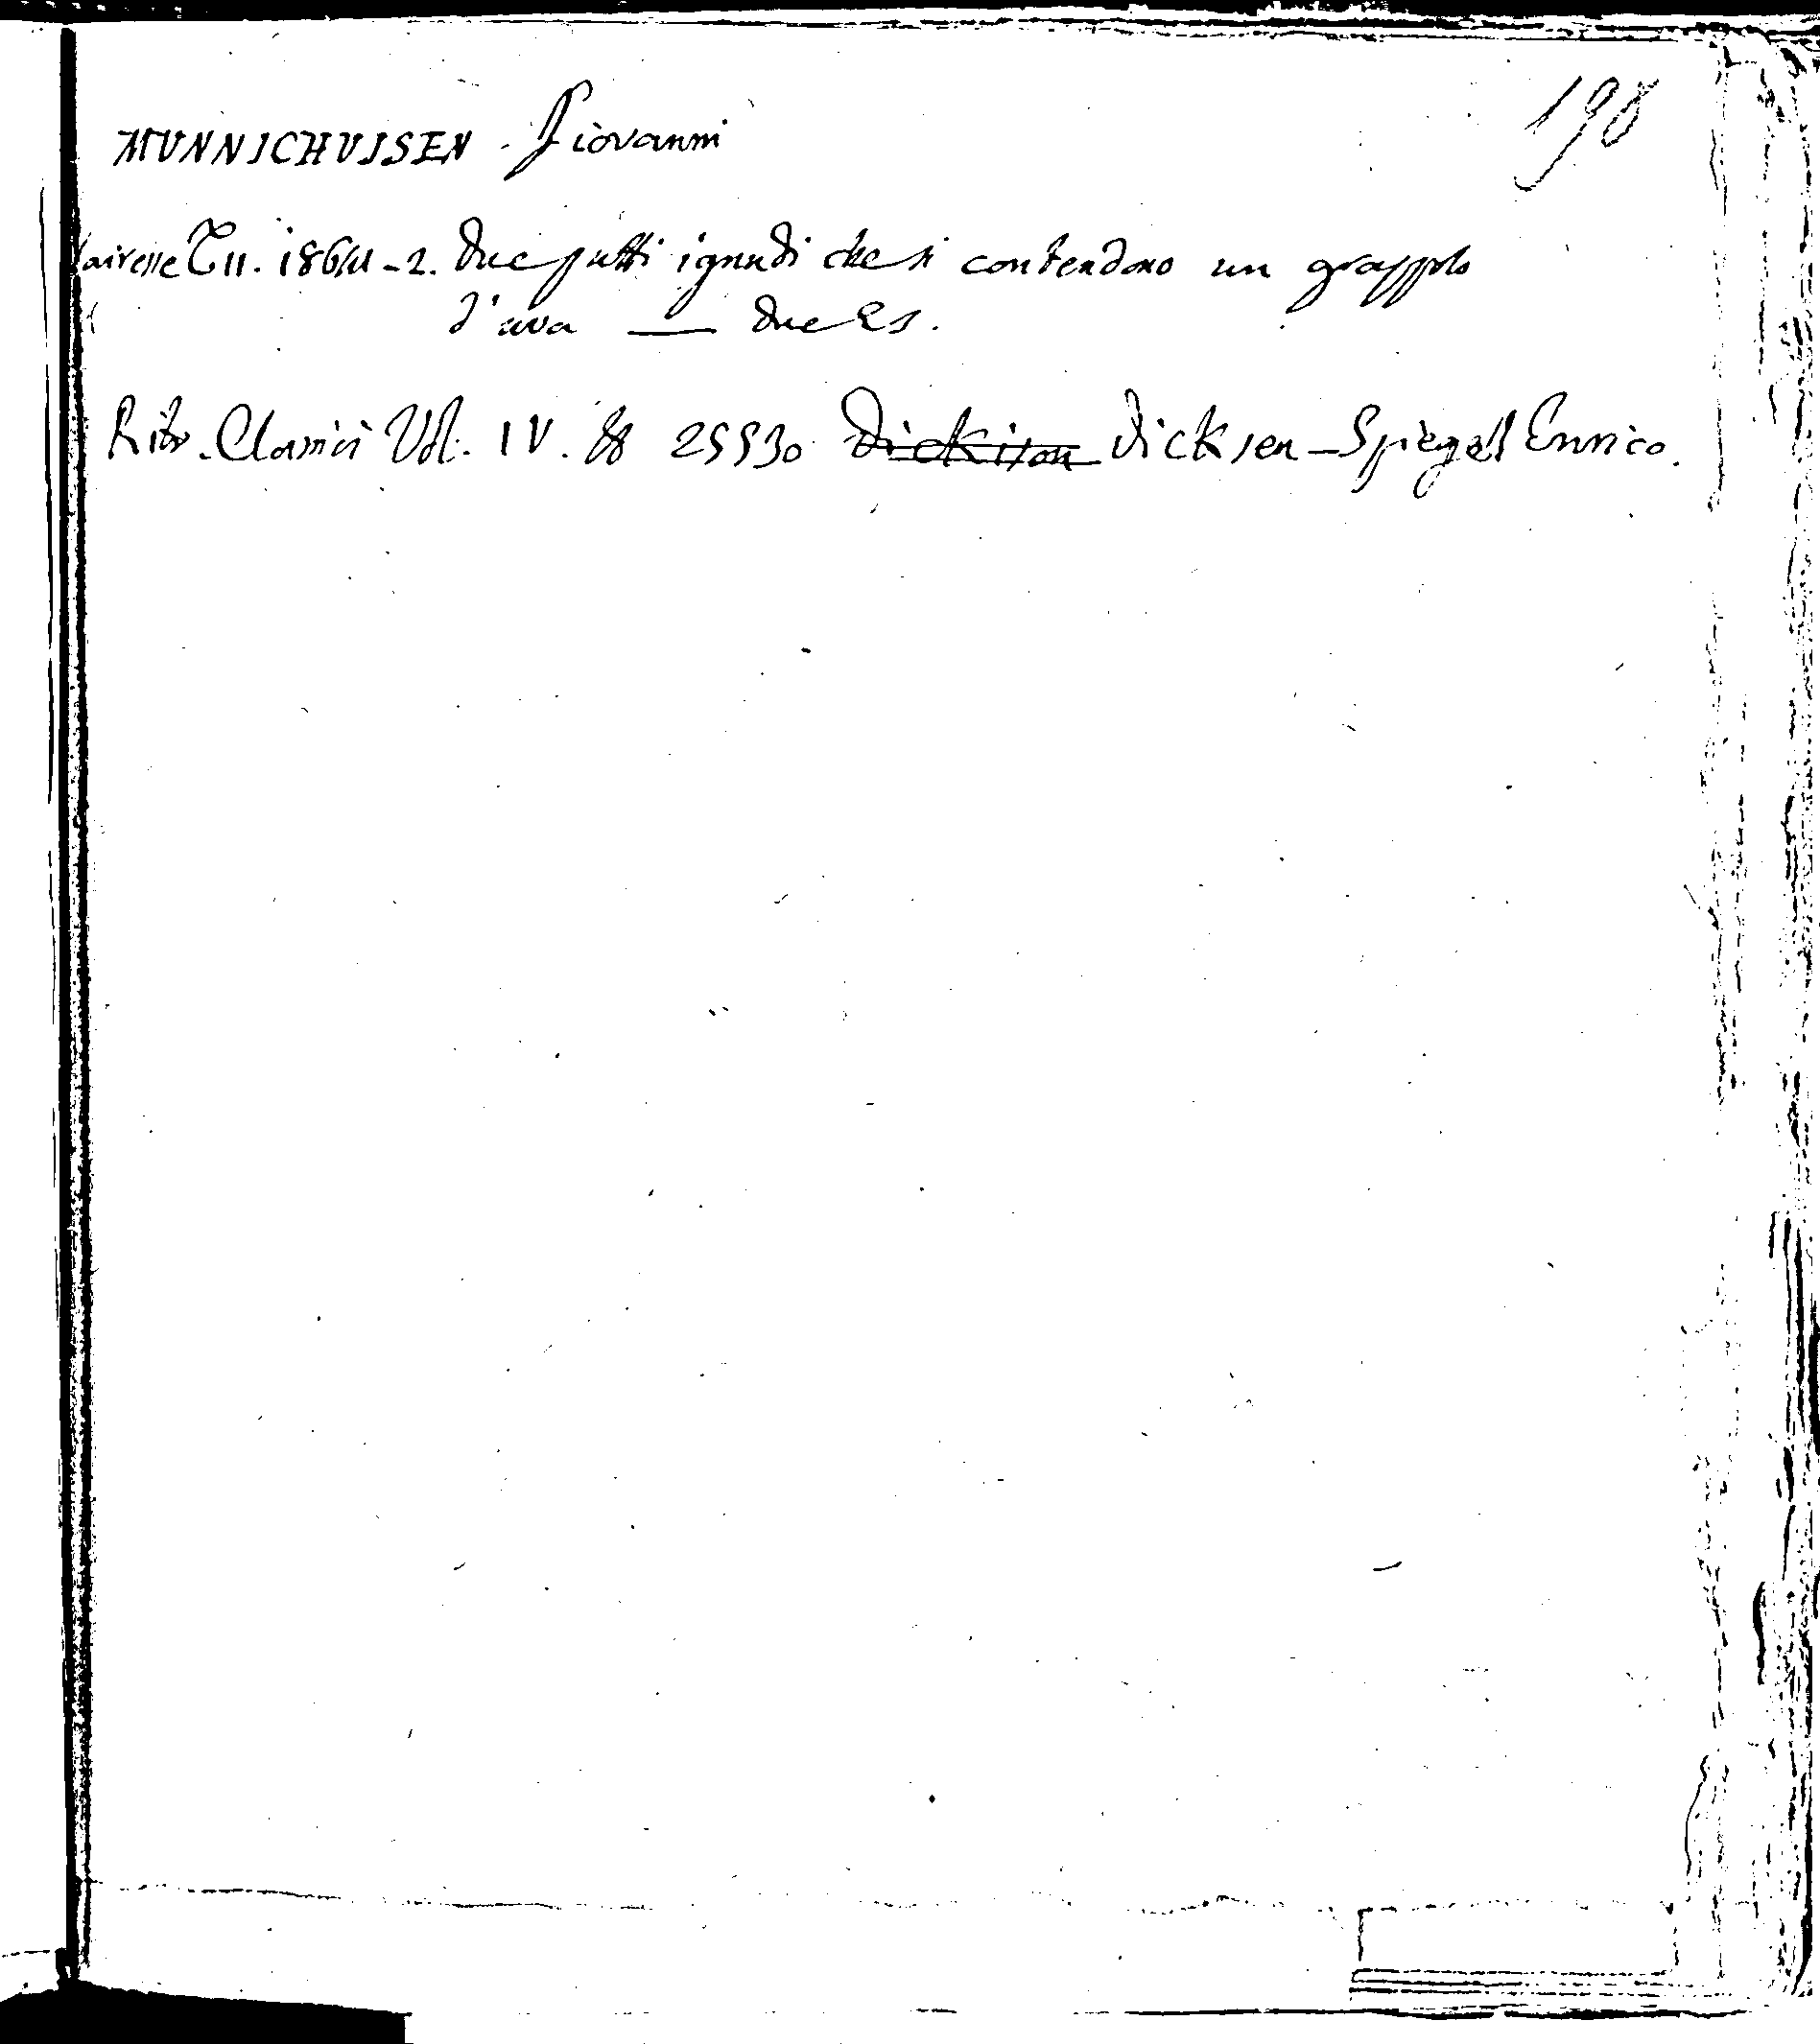 198
MUNNICHUISEN - Giovanni
Lairesse T II. 18641-2. Due putti ignudi che si contendono un grappolo
d'uva — due Es.
Ritr. Classici Vol. IV. 25530 Dickison Dicksen - Spiegel Enrico.